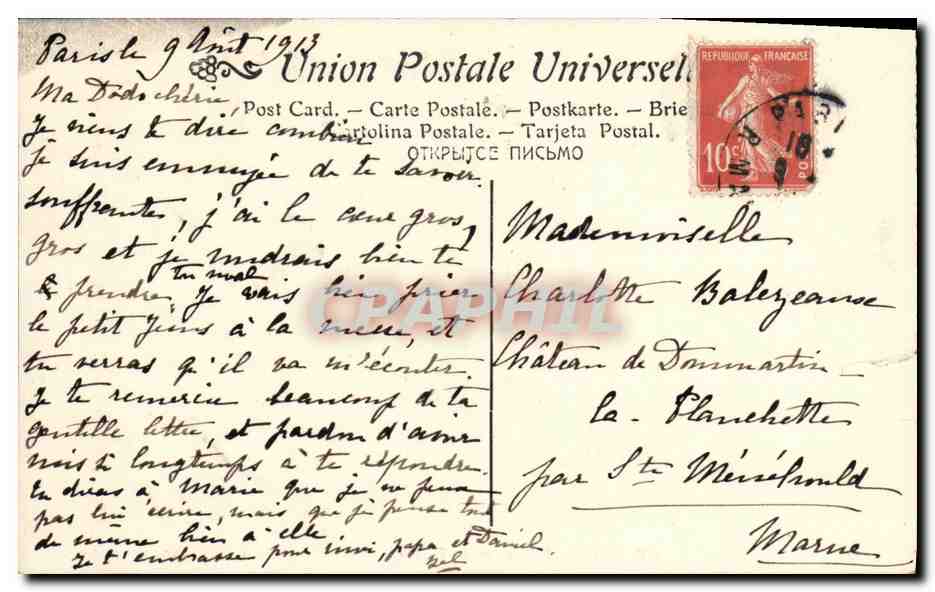 Paris le 9 Août 1913
Union Postale Universell
Ma Dodo chérie,
Post Card. — Carte Postale. — Postkarte. — Brie
artolina Postale. — Tarjeta Postal.
ОТКРЫТСЕ ПИСЬМО
Je viens te dire combien
je suis ennuyée de te savoir
souffrante, j'ai le cœur gros,
gros et je voudrais bien te
prendre ton mal. Je vais bien prier
le petit Jésus à la messe, et
tu verras qu'il va m'écouter.
Je te remercie beaucoup de ta
gentille lettre, et pardon d'avoir
mis si longtemps à te répondre.
Tu diras à Marie que je ne peux
pas lui écrire, mais que je pense tout
de même bien à elle
Je t'embrasse pour papa et Daniel
REPUBLIQUE FRANÇAISE
10c
PO
Mademoiselle
Charlotte Balezeaux
Château de Dommartin
la-Planchette
par Ste Ménéhould
Marne
CPARPHIL